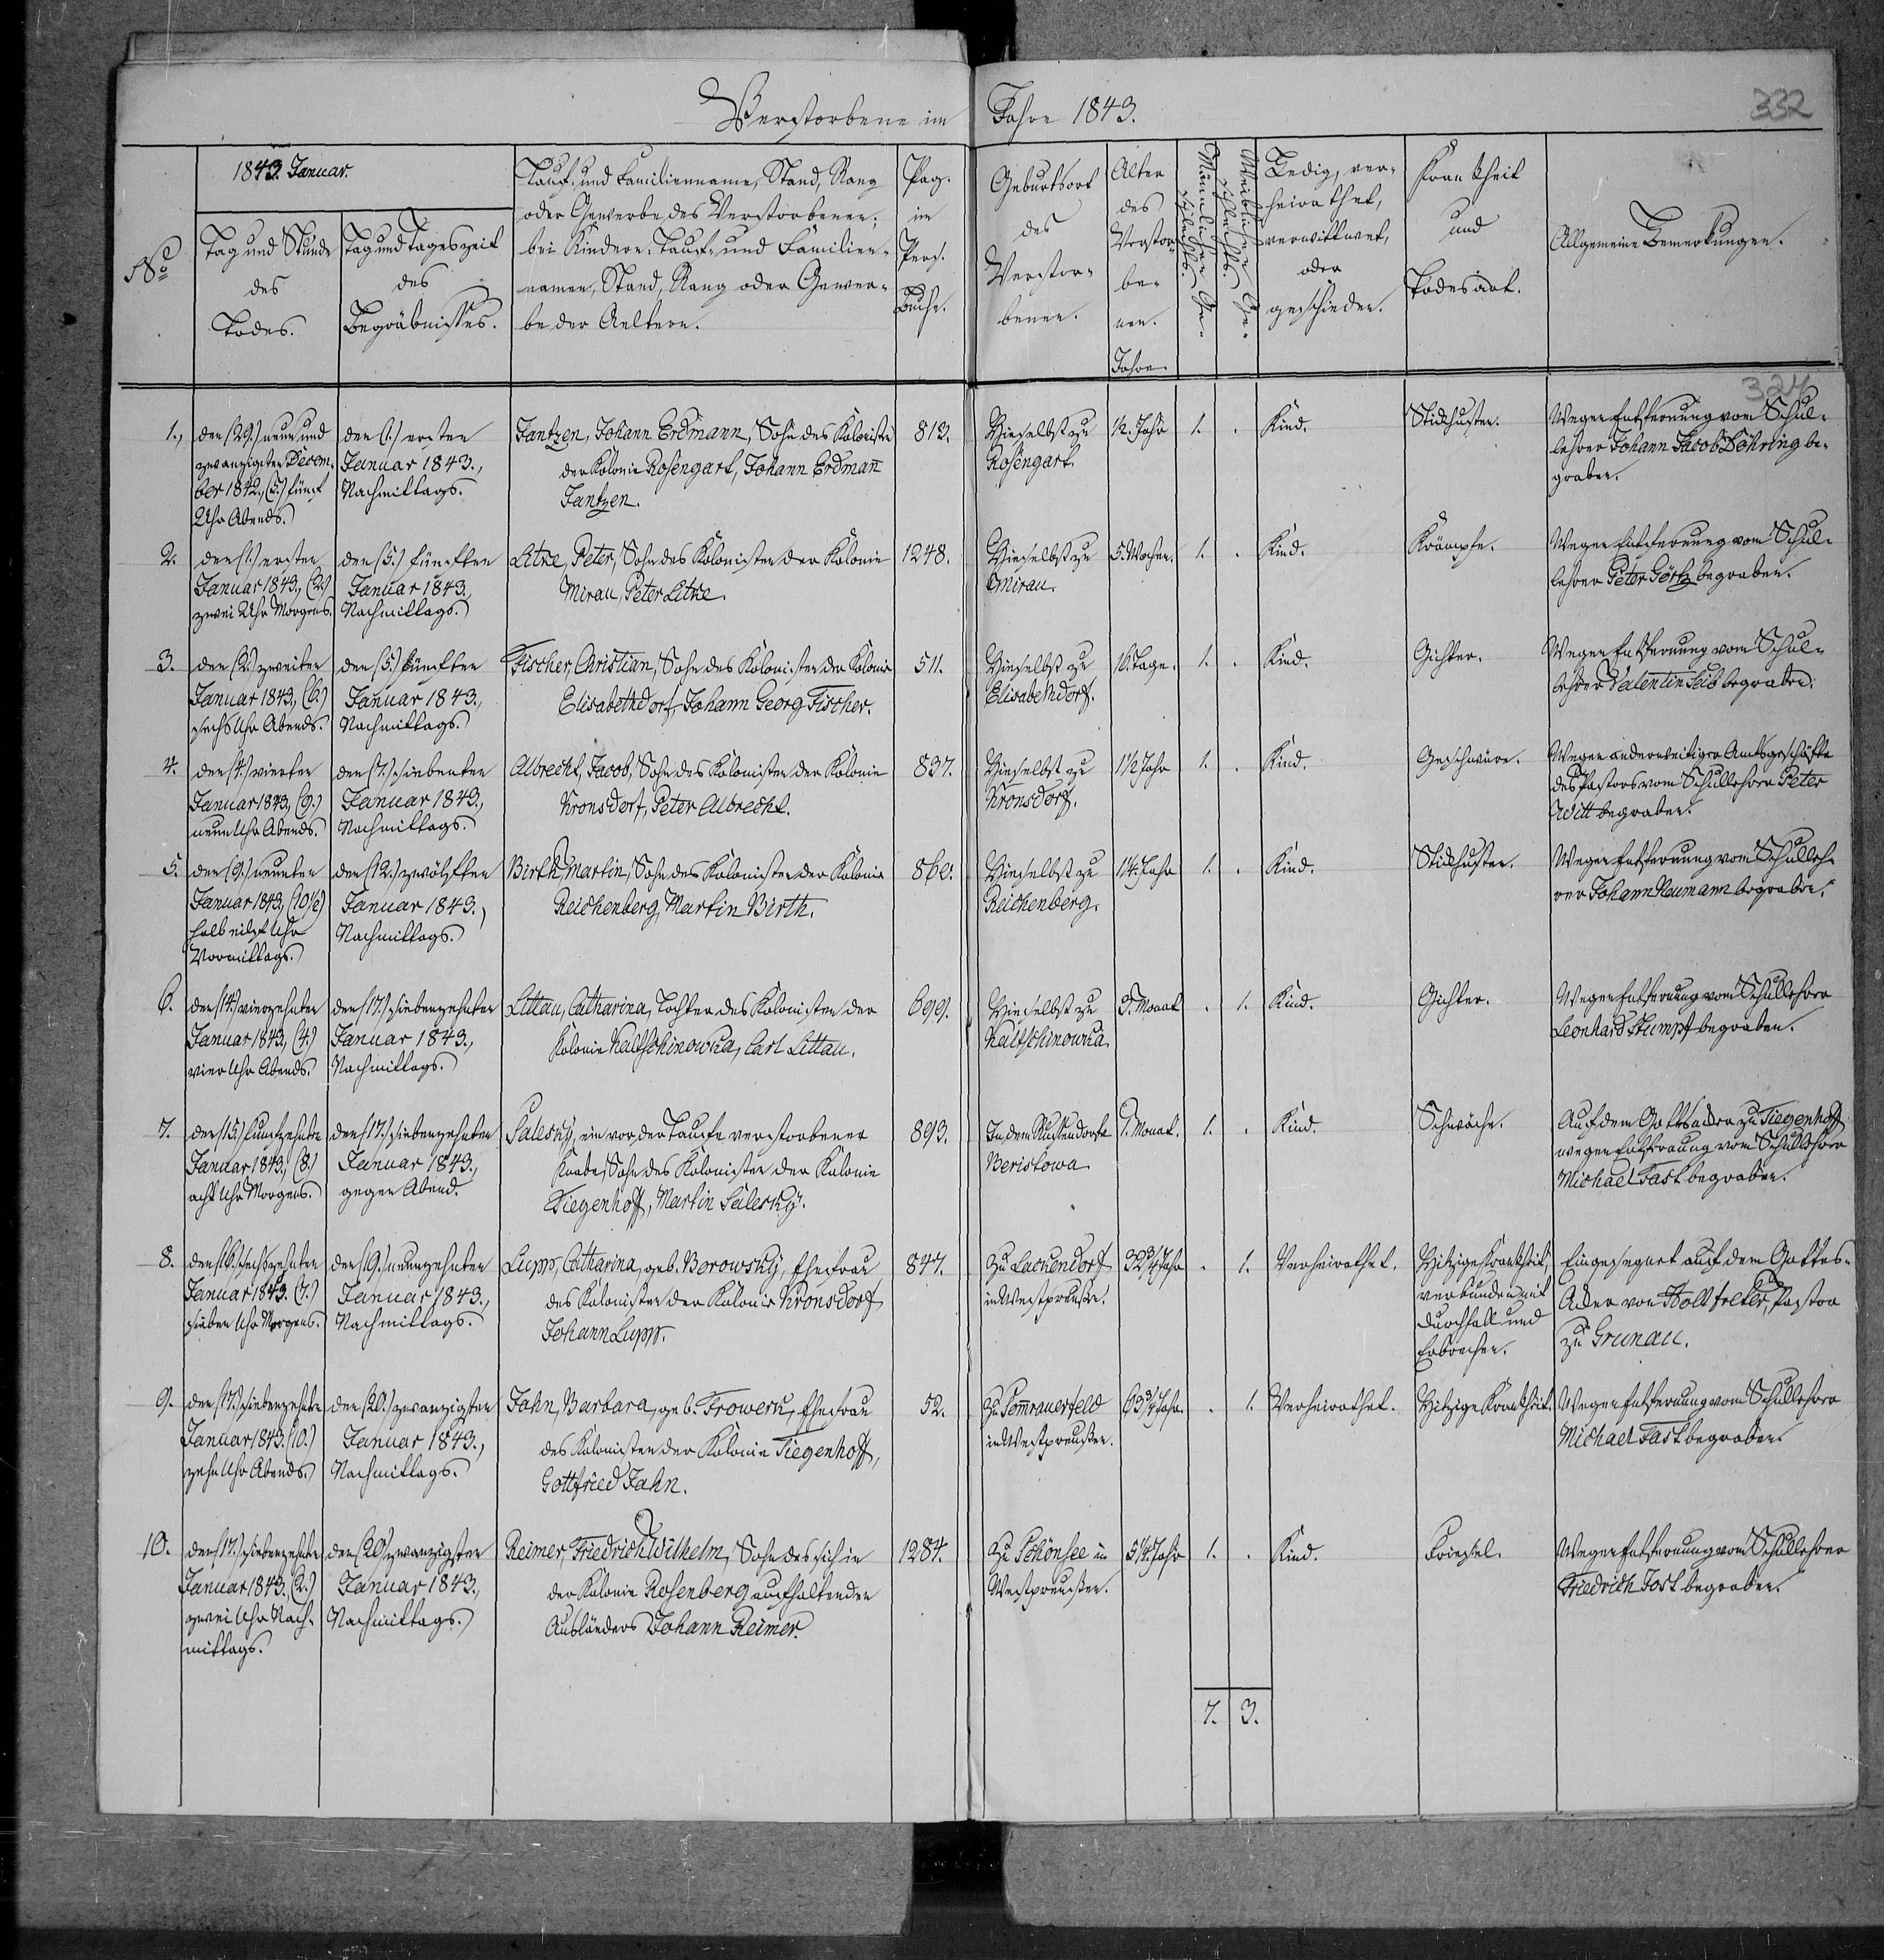 Verstorbene im Jahre 1843.
332
1843. Januar.
No
Tag und Stunde
des
Todes.
Tag und Tageszeit
des
Begräbnisses.
Tauf- und Familienname, Stand, Rang
oder Gewerbe des Verstorbenen;
bei Kindern: Tauf- und Familien-
namen, Stand, Rang oder Gewer-
be der Aeltern.
Pag.
im
Pers.
Buche.
Geburtsort
des
Verstor-
benen.
Alter
des
Verstor-
be-
nen.
Jahre.
Männlichen Ge-
schlechts.
Weiblichen Ge-
schlechts.
Ledig, ver-
heirathet,
verwittwet,
oder
geschieden.
Krankheit
und
Todesart.
Allgemeine Bemerkungen.
324
1.,
den (29.) neun und
zwanzigsten Decem-
ber 1842., (5.) fünf
Uhr Abends.
den (1.) ersten
Januar 1843.,
Nachmittags.
Jantzen, Johann Erdmann, Sohn des Kolonisten
der Kolonie Rosengart, Johann Erdmañ
Jantzen.
813.
Hieselbst zu
Rosengart.
1/2. Jahr
1.
.
Kind.
Stickhusten.
Wegen Entfernung vom Schul-
lehrer Johann Jacob Döhring be-
graben.
2.
den (1.) ersten
Januar 1843., (2.)
zwei Uhr Morgens.
den (5.) fünften
Januar 1843.,
Nachmittags.
Litke, Peter, Sohn des Kolonisten der Kolonie
Mirau, Peter Litke.
1248.
Hieselbst zu
Mirau.
5. Wochen.
1.
.
Kind.
Krämpfe.
Wegen Entfernung vom Schul-
lehrer Peter Görtz begraben.
3.
den (2.) zweiten
Januar 1843., (6.)
sechs Uhr Abends.
den (5.) fünften
Januar 1843.,
Nachmittags.
Fischer, Christian, Sohn des Kolonisten der Kolonie
Elisabethdorf, Johann Georg Fischer.
511.
Hieselbst zu
Elisabethdorf.
16. Tage.
1.
.
Kind.
Gichter.
Wegen Entfernung vom Schul-
lehrer Valentin Seib begraben.
4.
den (4.) vierten
Januar 1843., (9.)
neun Uhr Abends.
den (7.) siebenten
Januar 1843.,
Nachmittags.
Albrecht, Jacob, Sohn des Kolonisten der Kolonie
Kronsdorf, Peter Albrecht.
837.
Hieselbst zu
Kronsdorf.
1 1/2 Jahr
1.
.
Kind.
Geschwüre.
Wegen anderweitiger Amtsgeschäfte
des Pastors vom Schullehrer Peter
Witt begraben.
5.
den (9.) neunten
Januar 1843., (10 1/2)
halb eilf Uhr
Vormittags.
den (12.) zwölften
Januar 1843.,
Nachmittags.
Birth, Martin, Sohn des Kolonisten der Kolonie
Reichenberg, Martin Birth.
860.
Hieselbst zu
Reichenberg.
1/4. Jahr
1.
.
Kind.
Stickhusten.
Wegen Entfernung vom Schulleh-
rer Johann Neumann begraben.
6.
den (14.) vierzehnten
Januar 1843., (4.)
vier Uhr Abends.
den (17.) siebenzehnten
Januar 1843.,
Nachmittags.
Littau, Catharina, Tochter des Kolonisten der
Kolonie Kaltschinowka, Carl Littau.
699.
Hieselbst zu
Kaltschinowka.
Monat
.
1.
Kind.
Gichter.
Wegen Entfernung vom Schullehrer
Leonhard Stumpf begraben.
7.
den (15.) funfzehnten
Januar 1843., (8.)
acht Uhr Morgens.
den (17.) siebenzehnten
Januar 1843.,
gegen Abend.
Salesky, ein vor der Taufe verstorbener
Knabe, Sohn des Kolonisten der Kolonie
Tiegenhoff, Martin Salesky.
893.
In dem Russendorfe
Beristowa
1. Monat.
1.
.
Kind.
Schwäche.
Auf dem Gottesacker zu Tiegenhoff
wegen Entfernung vom Schullehrer
Michael Fast begraben.
8.
den (16.) sechszehnten
Januar 1843. (7.)
sieben Uhr Morgens.
den (19.) neunzehnten
Januar 1843.,
Nachmittags.
Lupp, Catharina, geb. Borowsky, Ehefrau
des Kolonisten der Kolonie Kronsdorf
Johann Lupp.
847.
Zu Lackendorf
in Westpreußen.
32 3/4 Jahr
.
1.
Verheirathet.
Hitzige Krankheit,
verbunden mit
Durchfall und
Erbrechen.
Eingesegnet auf dem Gottes-
Acker von Holtfreter, Pastor
zu Grunau.
9.
den (17.) siebenzehnten
Januar 1843. (10.)
zehn Uhr Abends.
den (20.) zwanzigsten
Januar 1843.,
Nachmittags.
Jahn, Barbara, geb. Frowerk, Ehefrau
des Kolonisten der Kolonie Tiegenhoff,
Gottfried Jahn.
52.
Zu
in Westpreußen.
63 3/4 Jahr.
.
1.
Verheirathet.
Hitzige Krankheit.
Wegen Entfernung vom Schullehrer
Michael Fast begraben.
10.
den (17.) siebenzehnten
Januar 1843., (2.)
zwei Uhr Nach-
mittags.
den (20.) zwanzigsten
Januar 1843.,
Nachmittags.
Reimer, Friedrich Wilhelm, Sohn des sich in
der Kolonie Rosenberg aufhaltenden
Ausländers Johann Reimer.
1284.
Zu Schönsee in
Westpreußen.
5 1/4. Jahr
1.
.
Kind.
Friesel.
Wegen Entfernung vom Schullehrer
Friedrich Jost begraben.
7.
3.